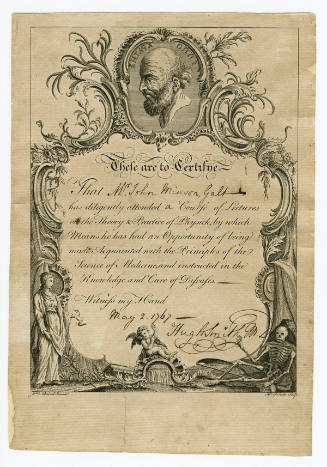 These are to Certifye
That Mr. John Minson Galt
has diligently attended a Course of Lectures
on the Theory & Practice of Physick, by which
Means he has had an Opportunity of being
made Acquainted with the Principles of the
Science of Medicine, and instructed in the
Knowledge and Cure of Diseases.
Witness my Hand
May 2. 1767
Hugh Smith M